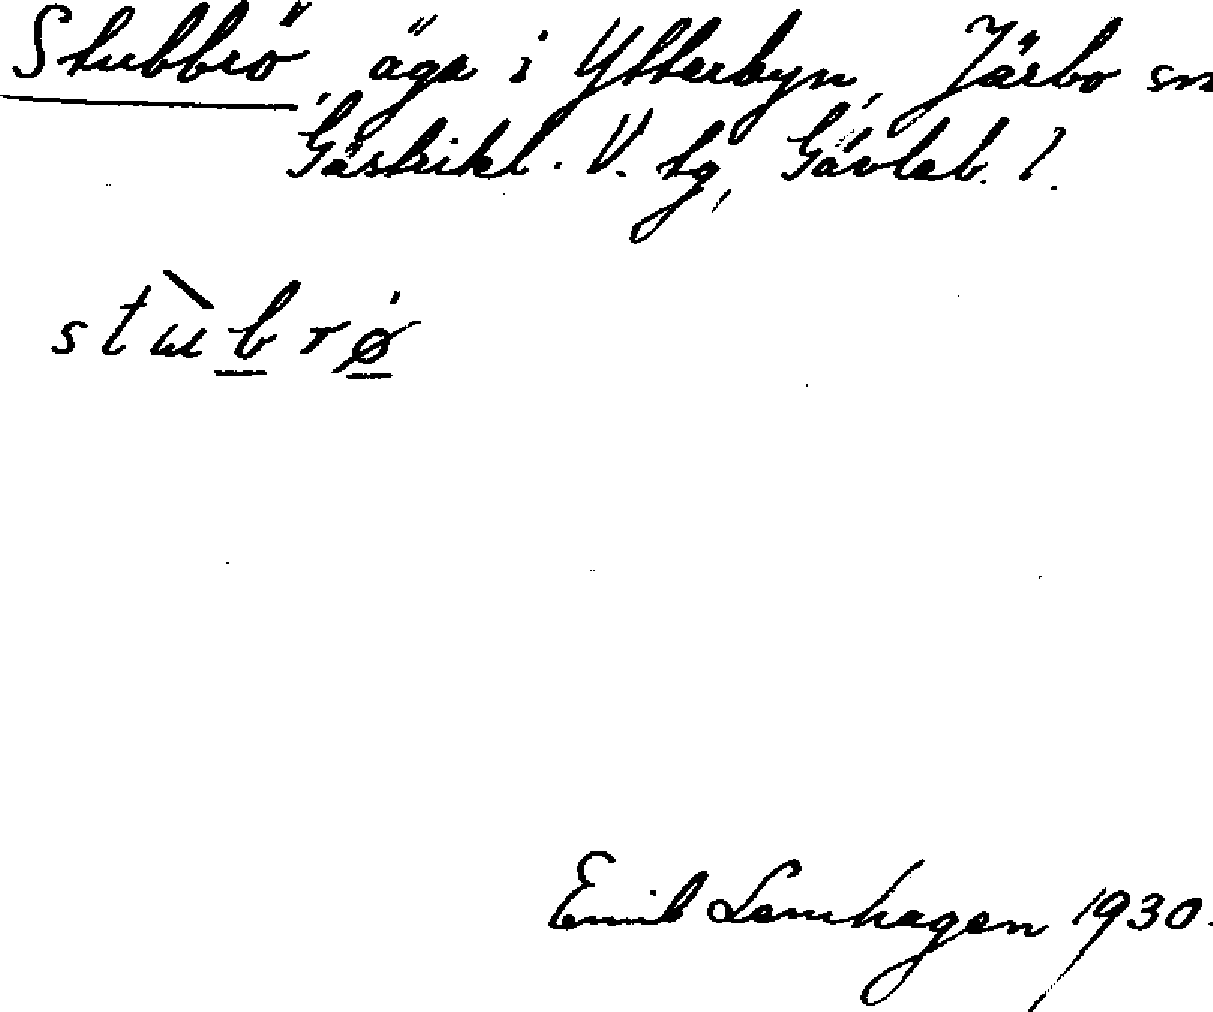 Stubbrö, äga i Ytterbyn, Järbo sn
Gästrikl. V. tg, Gävleb. l.
stùbrø
Emil Lemhagen 1930.